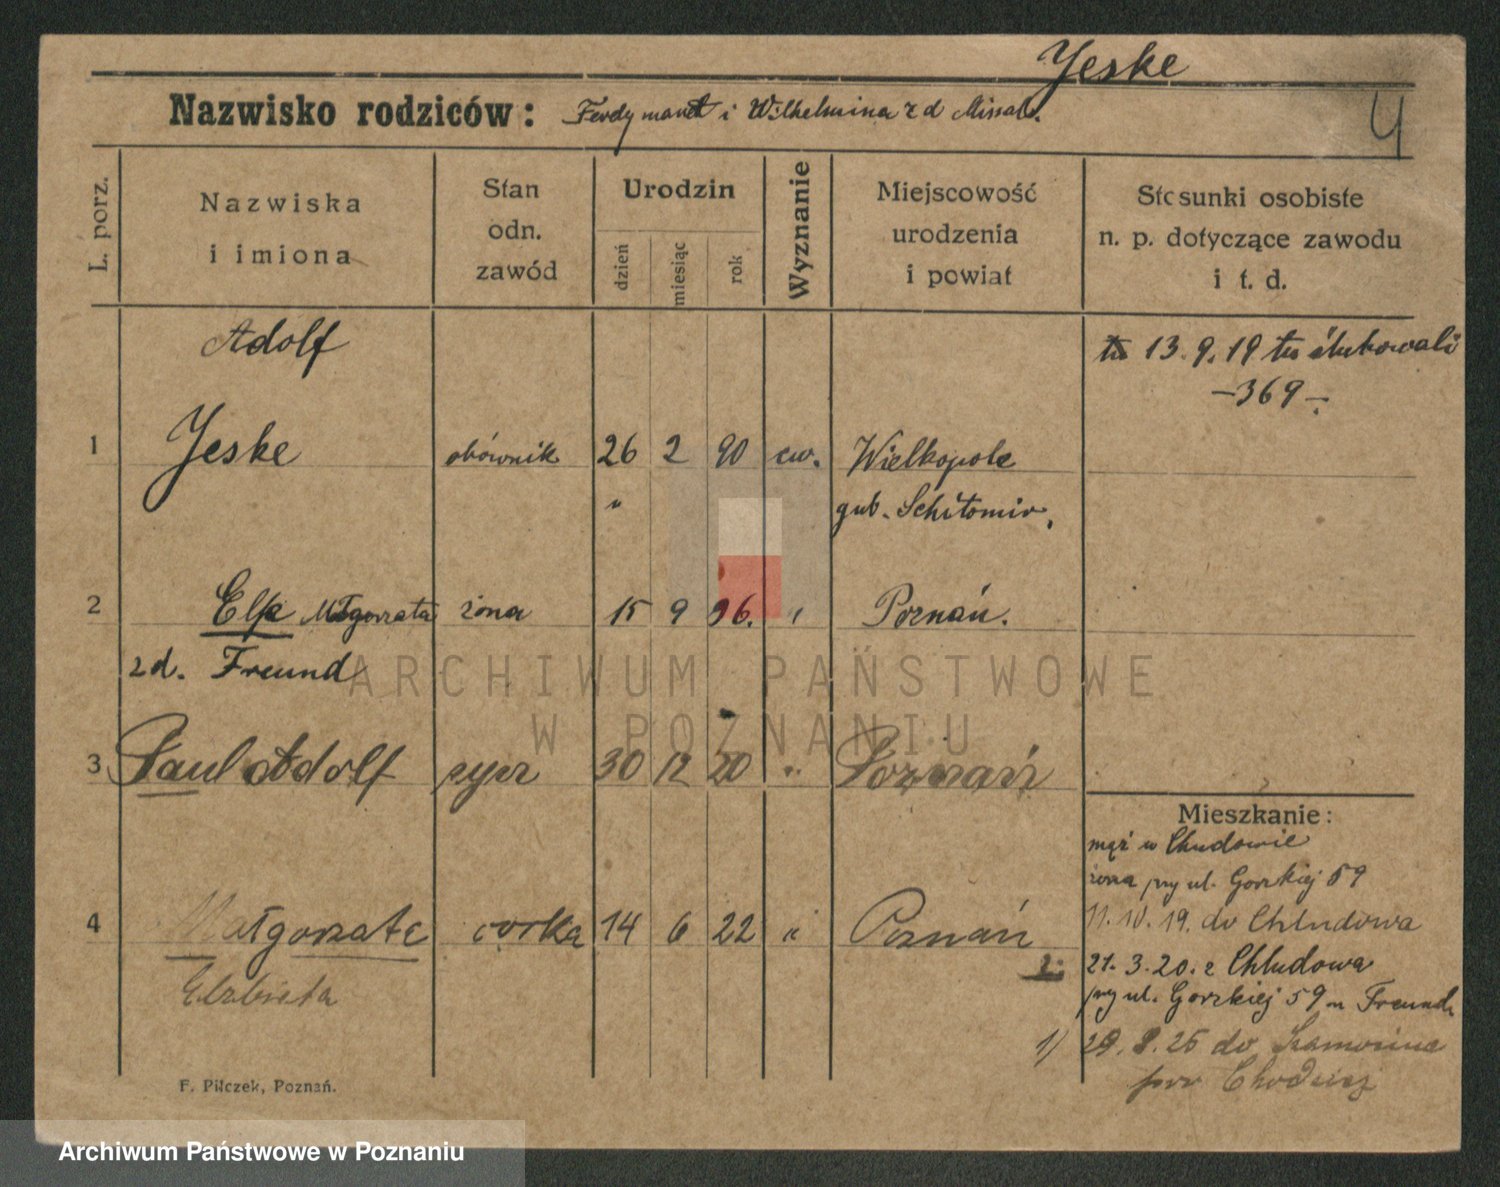 Yeske
4
Nazwisko rodziców: Ferdymandt i Wilhelmina z d
L. porz.
Nazwiska
i imiona
Stan
odn.
zawód
Urodzin
dzień
miesiąc
rok
Wyznanie
Miejscowość
urodzenia
i powiat
Stosunki osobiste
n. p. dotyczące zawodu
i t. d.
Adolf
13.9.19 tu ślubowali
-369-
1 Yeske obównik 26 2 90 ew. Wielkopole
" gub. Schitomir.
2 Elſe Małgorzata żona 15 9 96. " Poznań.
zd. Freund
3 Paul Adolf syn 30 12 20 " Poznań
Mieszkanie:
mąż w Chudowie
żona przy ul. Gorzkiej 59
4 Małgorzata córka 14 6 22 " Poznań
11.10.19. do Chludowa
2. 21.3.20. z Chludowa
Elzbieta
przy ul. Gorzkiej 59 u Freund
1) 29.8.25 do Szamocina
pow Chodzież
F. Pilczek, Poznań.
ARCHIWUM PAŃSTWOWE
W POZNANIU
Archiwum Państwowe w Poznaniu